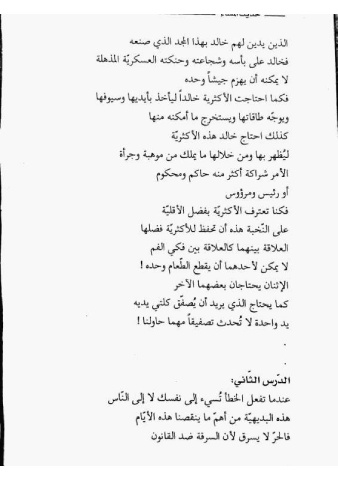 الذين يدين لهم خالد بهذا المجد الذي صنعه
فخالد على بأسه وشجاعته وحنكته العسكريّة المذهلة
لا يمكنه أن يهزم جيشاً وحده
فكما احتاجت الأكثرية خالداً ليأخذ بأيديها وسيوفها
ويوجّه طاقاتها ويستخرج ما أمكنه منها
كذلك احتاج خالد هذه الأكثريّة
ليُظهر بها ومن خلالها ما يملك من موهبة وجرأة
الأمر شراكة أكثر منه حاكم ومحكوم
أو رئيس ومرؤوس
فكنا تعترف الأكثريّة بفضل الأقليّة
على النّخبة هذه أن تحفظ للأكثريّة فضلها
العلاقة بينهما كالعلاقة بين فكي الفم
لا يمكن لأحدهما أن يقطع الطّعام وحده !
الإثنان يحتاجان بعضهما الآخر
كما يحتاج الذي يريد أن يُصفّق كلتي يديه
يد واحدة لا تُحدث تصفيقاً مهما حاولنا !
.
.
الدّرس الثّاني:
عندما تفعل الخطأ تُسيء إلى نفسك لا إلى النّاس
هذه البديهيّة من أهمّ ما ينقصنا هذه الأيّام
فالحرّ لا يسرق لأن السرقة ضد القانون